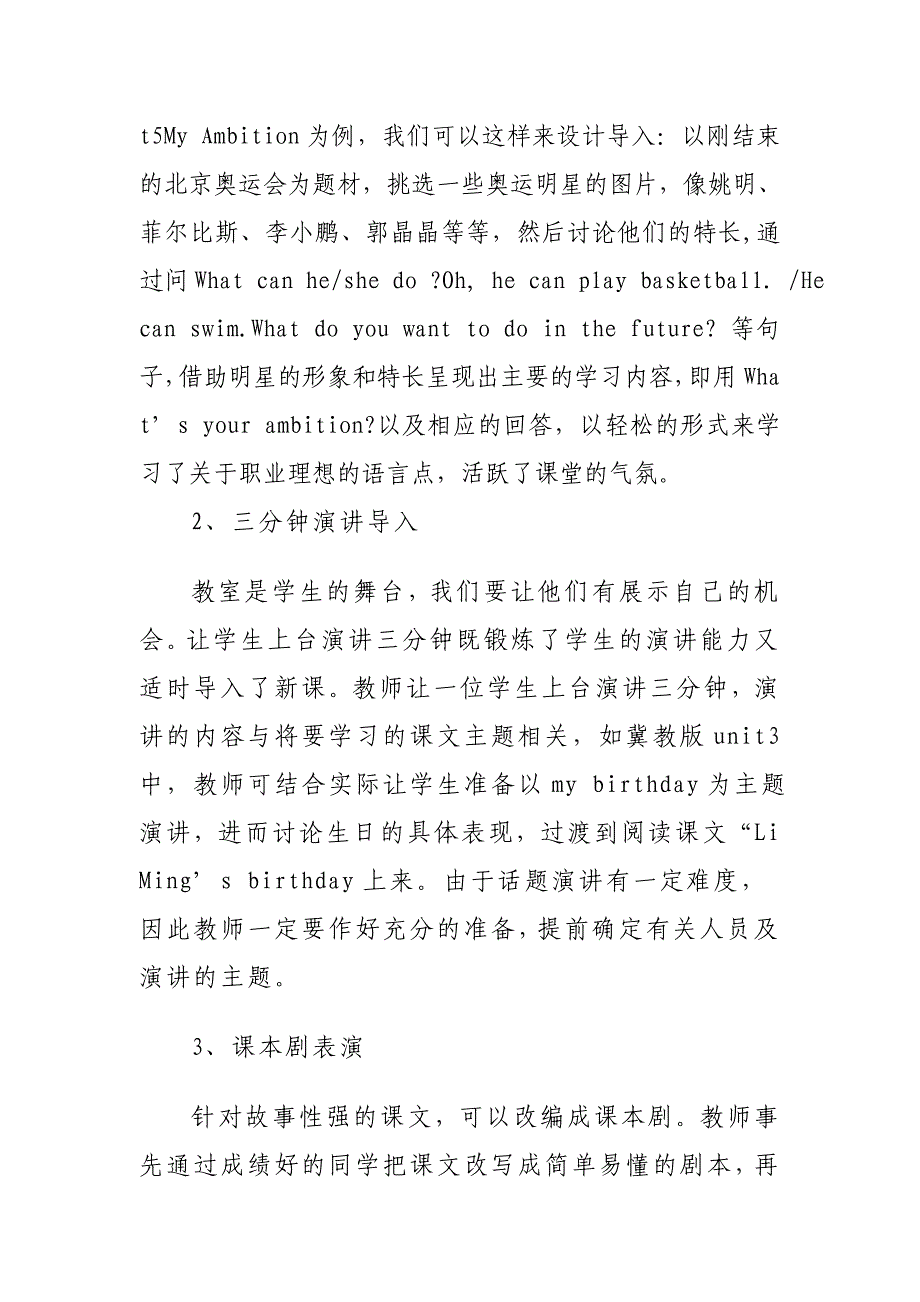 t5My Ambition为例，我们可以这样来设计导入：以刚结束
的北京奥运会为题材，挑选一些奥运明星的图片，像姚明、
菲尔比斯、李小鹏、郭晶晶等等，然后讨论他们的特长,通
过问What can he/she do ?Oh, he can play basketball. /He
can swim.What do you want to do in the future? 等句
子,借助明星的形象和特长呈现出主要的学习内容,即用Wha
t’s your ambition?以及相应的回答，以轻松的形式来学
习了关于职业理想的语言点，活跃了课堂的气氛。
2、三分钟演讲导入
教室是学生的舞台,我们要让他们有展示自己的机
会。让学生上台演讲三分钟既锻炼了学生的演讲能力又
适时导入了新课。教师让一位学生上台演讲三分钟，演
讲的内容与将要学习的课文主题相关，如冀教版unit3
中，教师可结合实际让学生准备以my birthday为主题
演讲，进而讨论生日的具体表现，过渡到阅读课文“Li
Ming’s birthday上来。由于话题演讲有一定难度，
因此教师一定要作好充分的准备,提前确定有关人员及
演讲的主题。
3、课本剧表演
针对故事性强的课文，可以改编成课本剧。教师事
先通过成绩好的同学把课文改写成简单易懂的剧本，再